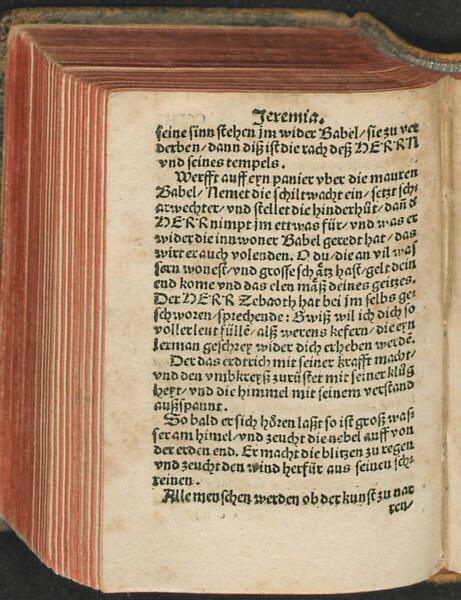 Jeremia.
seine sinn stehen jm wider Babel/ sie zu ver
derben/ dann diß ist die rach deß HERRN
vnd seines tempels.
Werfft auff eyn panier vber die mauren
Babel/ Nemet die schiltwacht ein/ setzt sch
arwechter/ vnd stellet die hinderhůt/ dañ d̕
HERR nimpt jm ettwas für/ vnd was er
wider die innwoner Babel geredt hat/ das
wirt er auch volenden. O du/ die an vil was
sern wonest/ vnd grosse schätz hast/ gelt dein
end kome vnd das elen mäß deines geitzes.
Der HERR Zebaoth hat bei im selbs ge
schworen/ sprechende: Gwiß wil ich dich so
voller leut füllē/ alß werens kefern/ die eyn
lerman geschrey wider dich erheben werdē.
Der das erdtrich mit seiner krafft macht/
vnd den vmbkreyß zurüstet mit seiner klůg
heyt/ vnd die himmel mit seinem verstand
außspannt.
So bald er sich hözen laßt so ist groß waß
ser am himel/ vnd zeucht die nebel auff von
der erden end. Er macht die blitzen zu regen
vnd zeucht den wind herfür aus seinen sch-
reinen.
Alle menschen werden ob der kunst zu nar
ren/